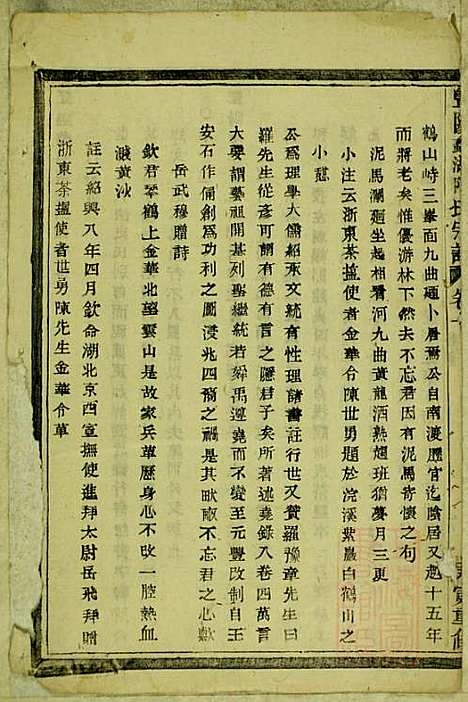 鶴山峙三峯面九曲廼卜居焉公自南渡歷官迄隂居又越十五年
而將老矣惟優游林下然不忘君因有泥馬寄懷之句
泥馬瀾廻坐起相看河九曲黃龍酒熟趨班猶夢月三更
小注云浙東茶搵使者金華令陳世勇題於浣溪紫巖白鶴山之
小憇
公爲理學大儒紹承文統有性理諸書註行世又贊羅豫章先生曰
羅先生從彥可謂有德有言之隱君子矣所著述堯錄八卷四萬言
大要謂藝祖開基列聖繼統若舜禹遵堯而不變至元豐改制自王
安石作俑創爲功利之圖浸兆四裔之禍是其畎畞不忘君之心歟
岳武穆贈詩
欽君琴鶴上金華北望雲山是故家兵革歷身心不改一腔熱血
濺黃沙
註云紹興八年四月欽命湖北京西宣撫使進拜太尉岳飛拜贈
浙東茶搵使者世勇陳先生金華令草